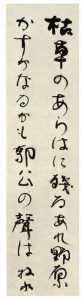 枯草のあらはに残るあれ野原
かすかなるかも郭公の聲は